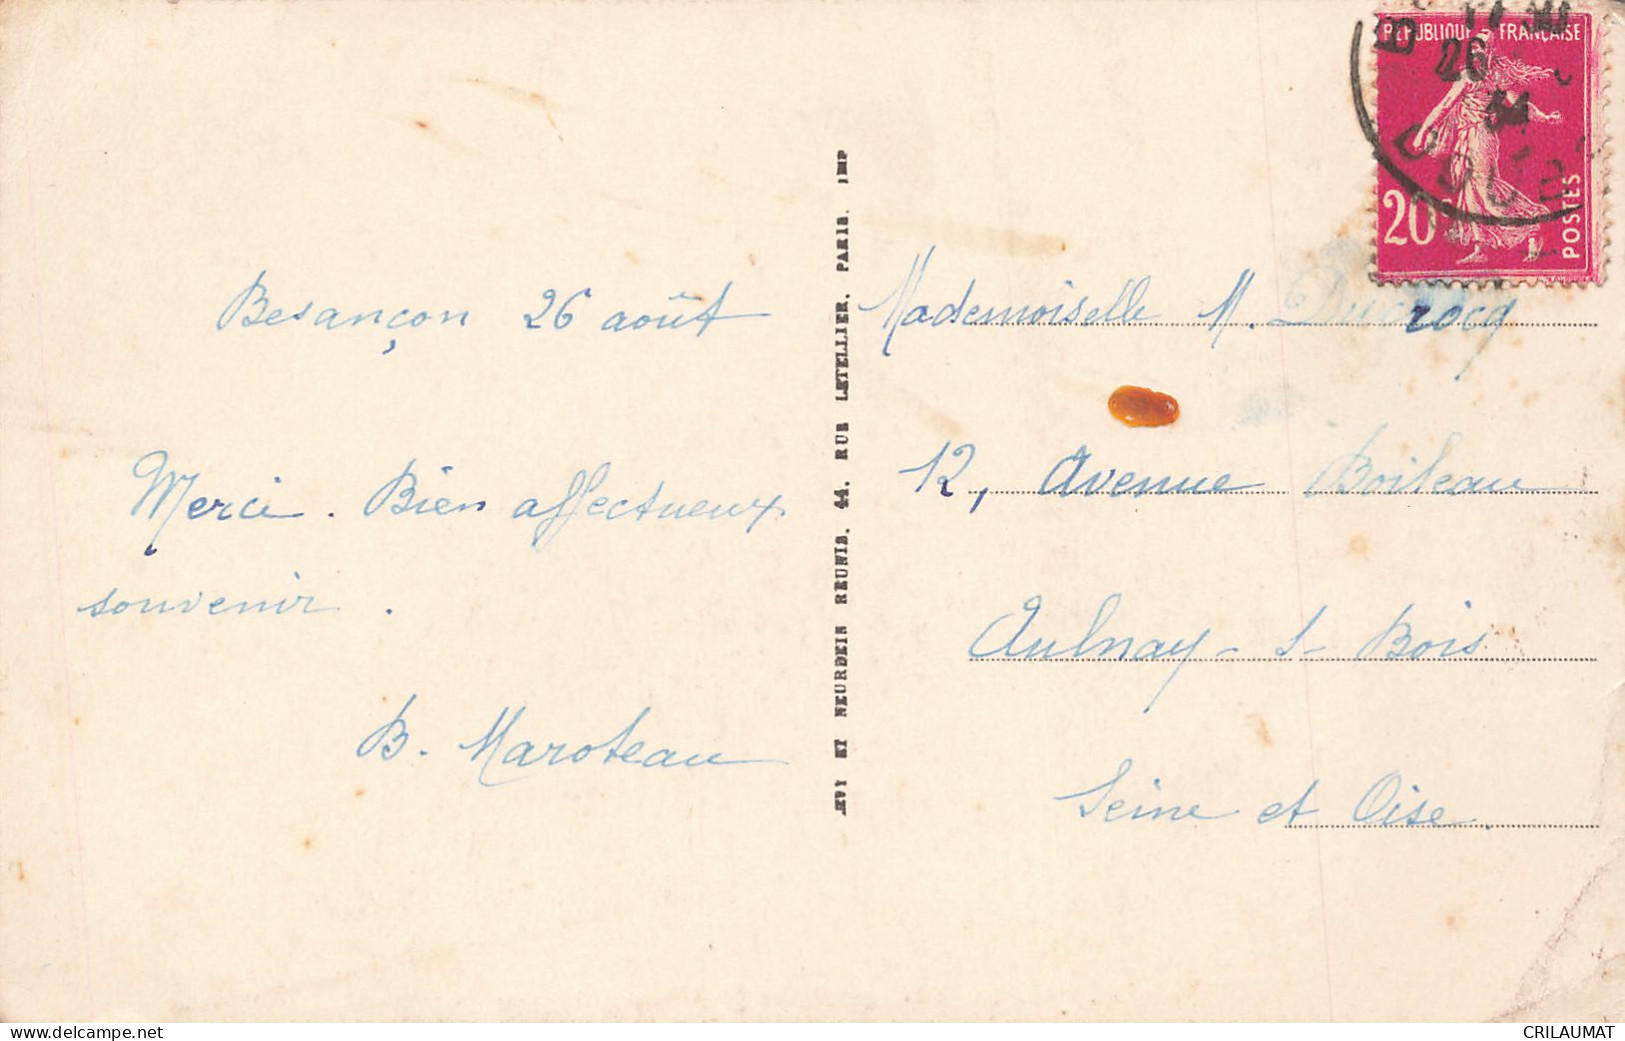 Besançon 26 août
Merci. Bien affectueux
souvenir.
B. Maroteau
LEVY ET NEURDEIN REUNIS, 44, RUE LETELLIER, PARIS. IMP
RÉPUBLIQUE FRANÇAISE
20c
POSTES
17 30
26
34
DOUBS
Mademoiselle M. Ducrocq
12, Avenue Boileau
Aulnay-s-Bois
Seine et Oise.
www.delcampe.net
CRILAUMAT